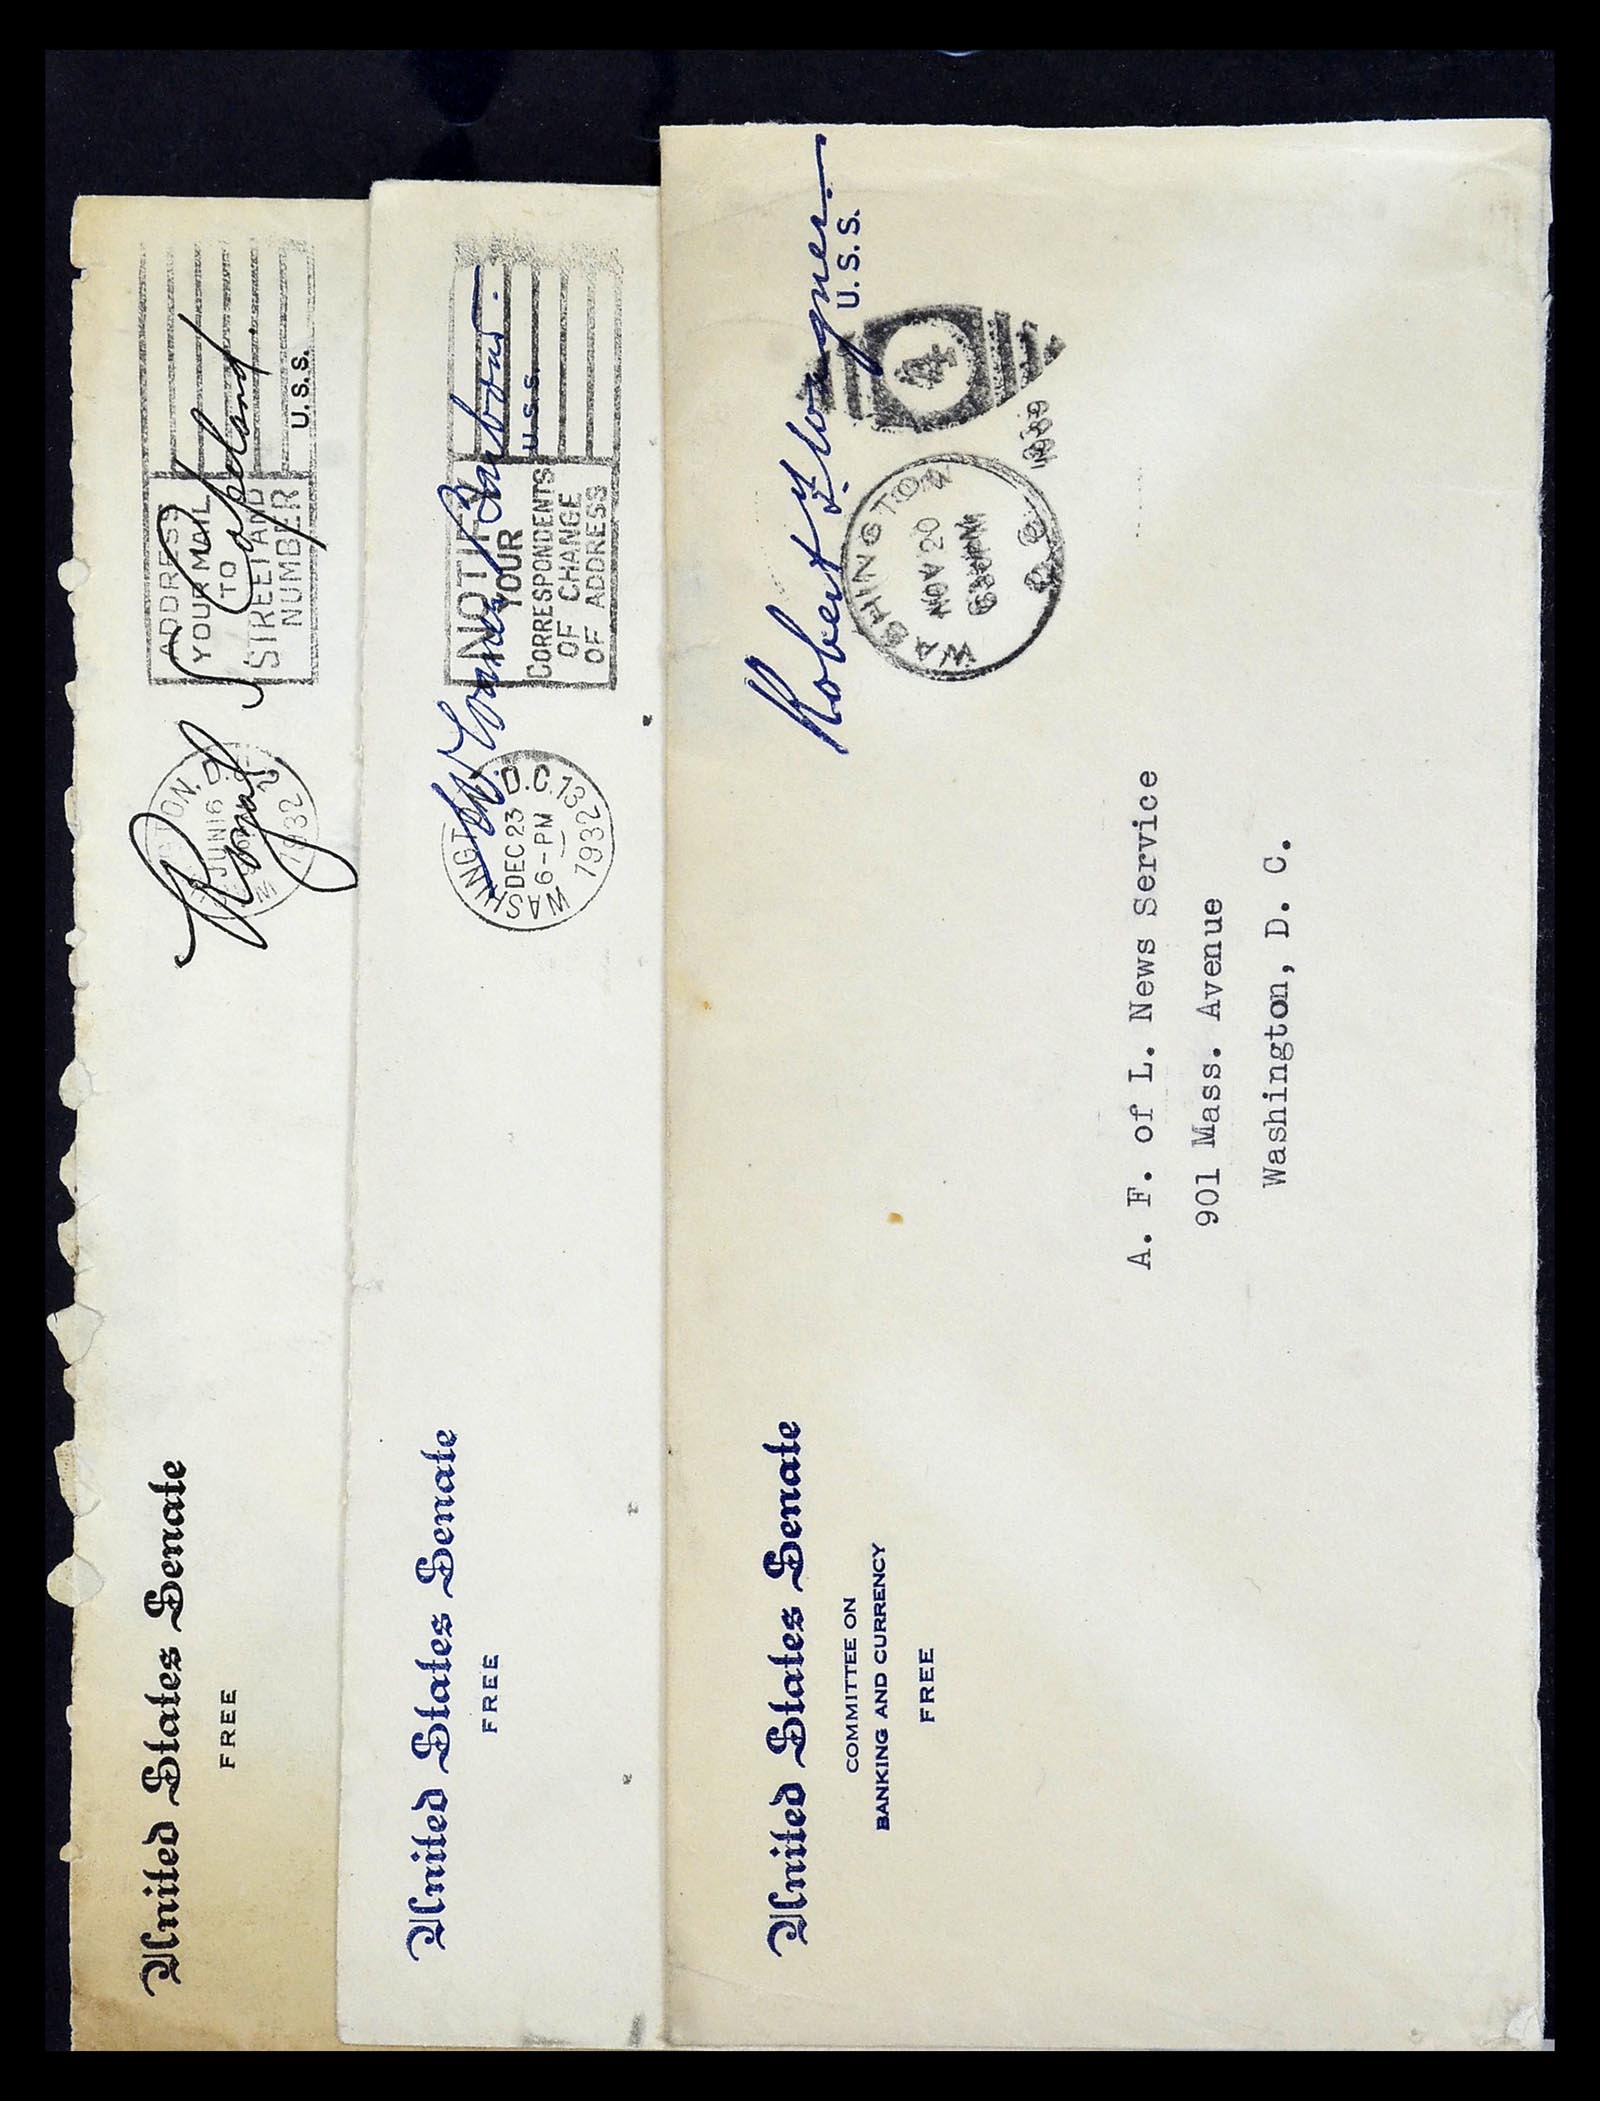 United States Senate
FREE
Royal S Copeland
U.S.S.
JUN 16
1932
ADDRESS
YOUR MAIL
TO
STREET AND
NUMBER
United States Senate
FREE
W. Warren Barbour.
U.S.S.
WASHINGT
D.C. 13
DEC 23
6-PM
1932
NOTIFY
YOUR
CORRESPONDENTS
OF CHANGE
OF ADDRESS
United States Senate
COMMITTEE ON
BANKING AND CURRENCY
FREE
Robert F. Wagner
U.S.S.
WASHINGTON
NOV 20
D.C.
1939
4
A. F. of L. News Service
901 Mass. Avenue
Washington, D. C.